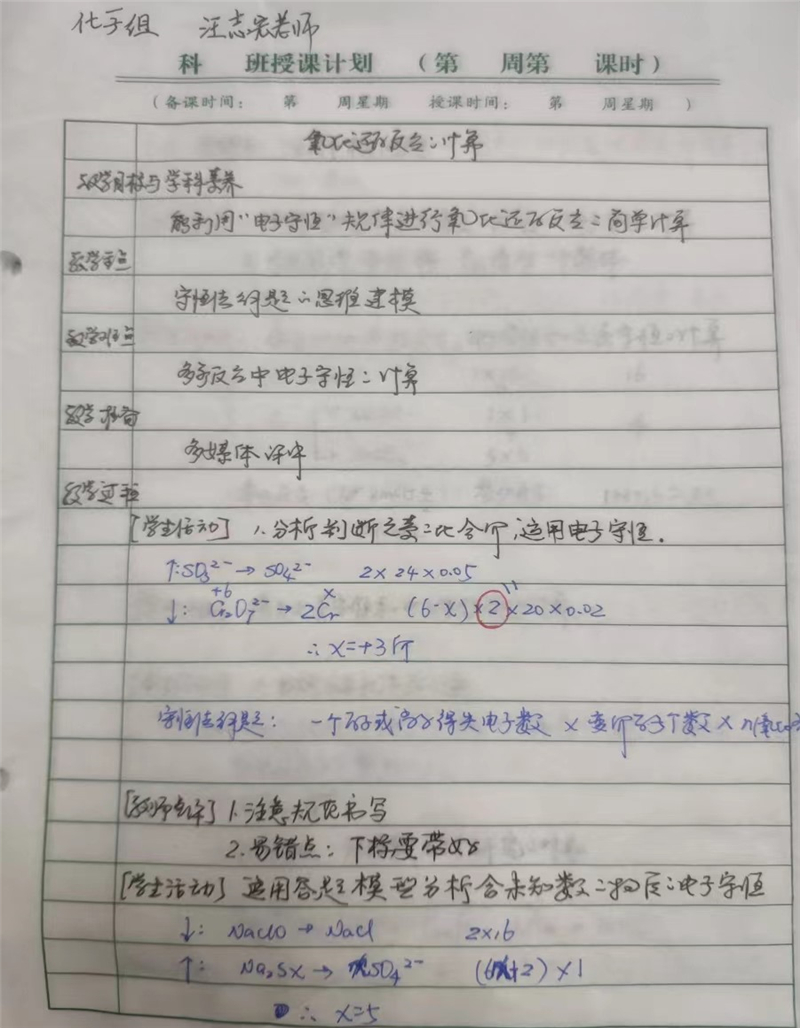 化学组 汪志宏老师
科 班授课计划 (第 周第 课时)
(备课时间: 第 周星期 授课时间: 第 周星期 )
氧化还原反应:计算
教学目标与学科素养
能利用“电子守恒”规律进行氧化还原反应:简单计算
教学重点
守恒法解题:思维建模
教学难点
多步反应中电子守恒:计算
教学准备
多媒体.课件
教学过程
[学生活动] 1.分析判断元素:化合价,运用电子守恒.
↑:SO₃²⁻→SO₄²⁻ 2×24×0.05
+6 x
↓: Cr₂O₇²⁻→2Cr (6-x)×2×20×0.02
∴x=+3价
守恒法解题: 一个原子或离子得失电子数 × 变价原子个数 × n(氧
[教师点评] 1.注意规范书写
2.易错点: 下标要带好
[学生活动] 运用答题模型分析含未知数:物质:电子守恒
↓: NaClO→NaCl 2×16
↑: Na₂Sx→xSO₄²⁻ (6x+2)×1
∴ x=5